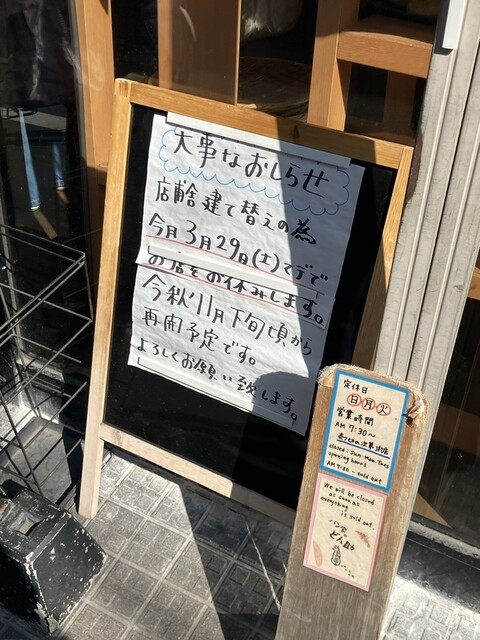 大事なおしらせ
店舗建て替えの為
今月3月29日(土)マデで
お店をお休みします。
今秋11月下旬頃から
再開予定です。
よろしくお願い致します。
定休日
日月火
営業時間
AM 7:30~
売り切れ次第閉店
closed: Sun・Mon・Tues
opening hours
AM 7:30 - sold out
We will be closed
as soon as
everything
is sold out.
パン家の
どん助